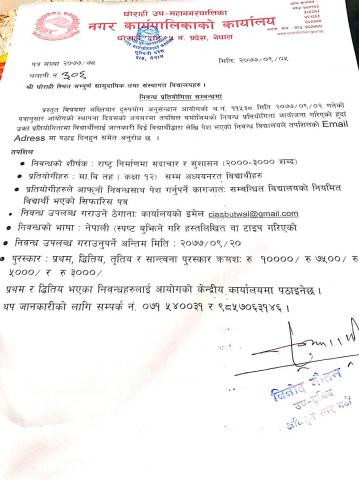 घोराही उप-महानगरपालिका
नगर कार्यपालिकाको कार्यालय
घोराही, दाङ, ५ नं. प्रदेश, नेपाल
पत्र संख्या २०७७/७८
मिति: २०७७/०९/०५
चलानी नं. ३०६
श्री घोराही स्थित सम्पूर्ण सामुदायिक तथा संस्थागत विद्यालयहरु ।
निबन्ध प्रतियोगिता सम्बन्धमा
प्रस्तुत विषयमा अख्तियार दुरुपयोग अनुसन्धान आयोगको च.नं. ११५३० मिति २०७७/०९/०२ गतेको
पत्रानुसार आयोगको स्थापना दिवसको अवसरमा तपसिल बमोजिमको निबन्ध प्रतियोगिता आयोजना गरिएको हुदा
उक्त प्रतियोगितामा विद्यार्थीलाई जानकारी दिई विद्यार्थीद्वारा लेखि पेश भएको निबन्ध विद्यालयले तपसिलको Email
Adress मा पठाई दिनहुन समेत अनुरोध छ ।
तपसिल
निबन्धको शीर्षक: राष्ट्र निर्माणमा सदाचार र सुशासन (२०००-३००० शब्द)
प्रतियोगीहरु: मा.वि तह। कक्षा १२) सम्म अध्ययनरत् विद्यार्थीहरु
प्रतियोगीहरुले आफ्नो निबन्धसाथ पेश गर्नुपर्ने कागजात: सम्बन्धित विद्यालयको नियमित
विद्यार्थी भएको सिफारिस पत्र
निबन्ध उपलब्ध गराउने ठेगाना: कार्यालयको इमेल ciaabutwal@gmail.com
निबन्धको भाषा: नेपाली (स्पष्ट बुझिने गरि हस्तलिखित वा टाइप गरिएको
निबन्ध उपलब्ध गराउनुपर्ने अन्तिम मिति: २०७७/०९/२०
पुरस्कार: प्रथम, द्वितिय, तृतिय र सान्त्वना पुरस्कार क्रमश: रु १००००/ रु ७५००/ रु
५०००/ र रु ३०००/
प्रथम र द्वितिय भएका निबन्धहरुलाई आयोगको केन्द्रीय कार्यालयमा पठाइनेछ ।
थप जानकारीको लागि सम्पर्क नं. ०७१ ५४००३१ र ९८५७०६३१४६ ।
विनोद गौतम
उप-सचिव